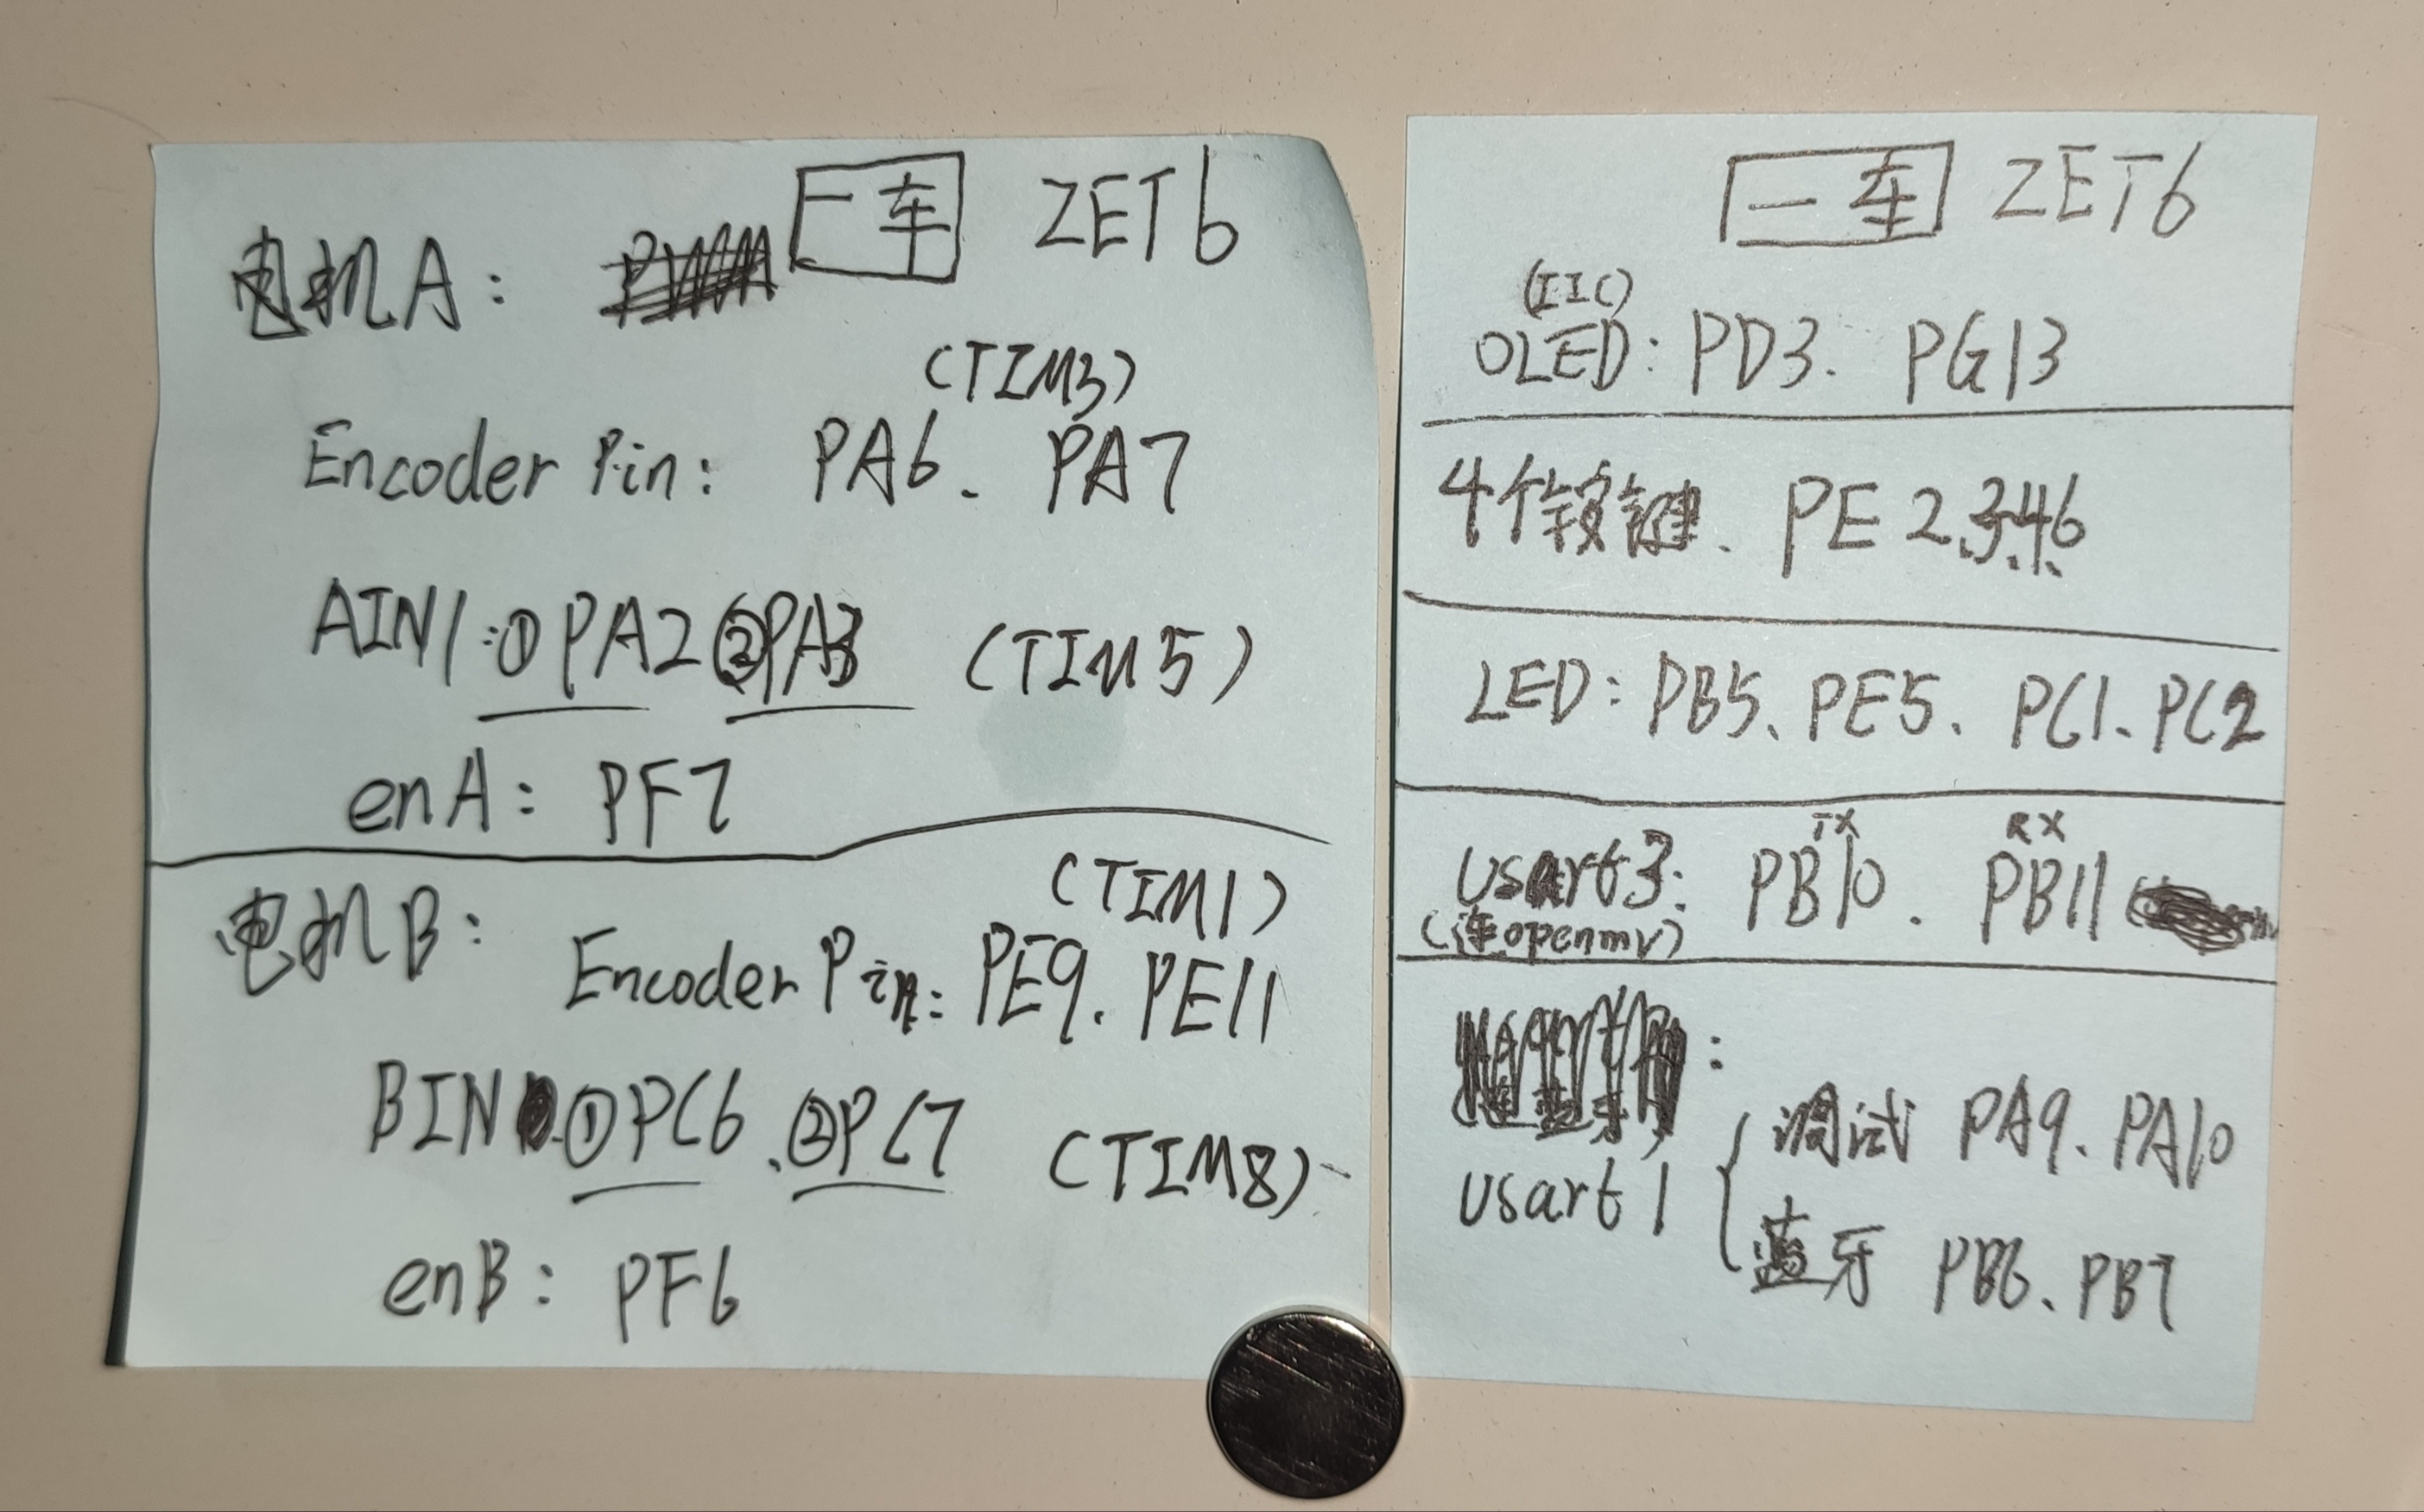 一车 ZET6
电机A:
(TIM3)
Encoder Pin: PA6. PA7
AIN1:①PA2 ②PA3 (TIM5)
enA: PF7
(TIM1)
电机B: Encoder Pin: PE9. PE11
BIN ①PC6 .②PC7 (TIM8)
enB: PF6
一车 ZET6
(IIC)
OLED: PD3. PG13
4个按键、PE 2.3.4.6
LED: PB5、PE5. PC1、PC2
TX RX
Usart3: PB10. PB11
(连openmv)
:
调试 PA9. PA10
Usart1
蓝牙 PB6、PB7